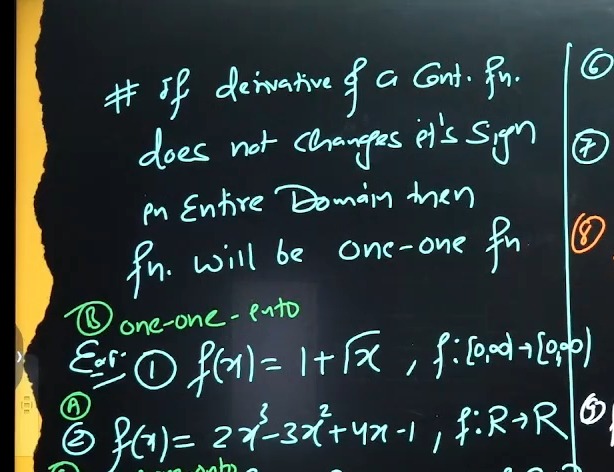 # If derivative of a Cont. fn.
does not changes it's Sign
in Entire Domain then
fn. will be one-one fn
Ⓑ one-one-into
Ex:- ① f(x) = 1+√x , f:[0,∞)→[0,∞)
Ⓐ
② f(x) = 2x³-3x²+4x-1 , f:R→R
⑥
⑦
⑧